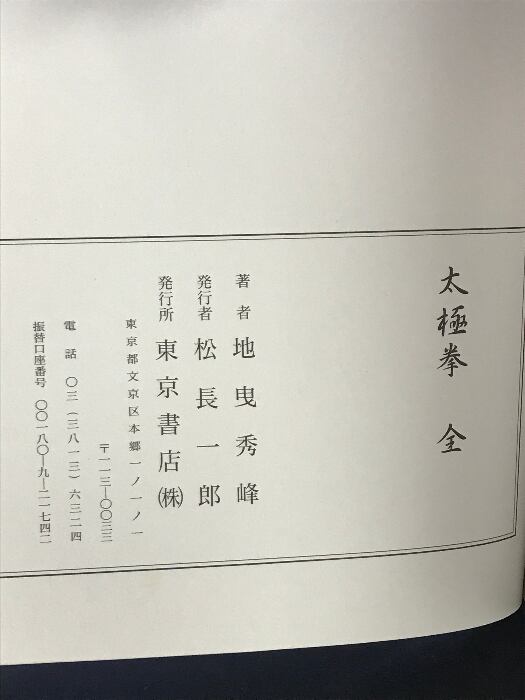 太極拳 全
著者 地曳秀峰
発行者 松長一郎
発行所 東京書店㈱
東京都文京区本郷一ノ一ノ一
〒一一三―〇〇三三
電話 〇三(三八一三)六三二四
振替口座番号 〇〇一八〇―九―二一七四二